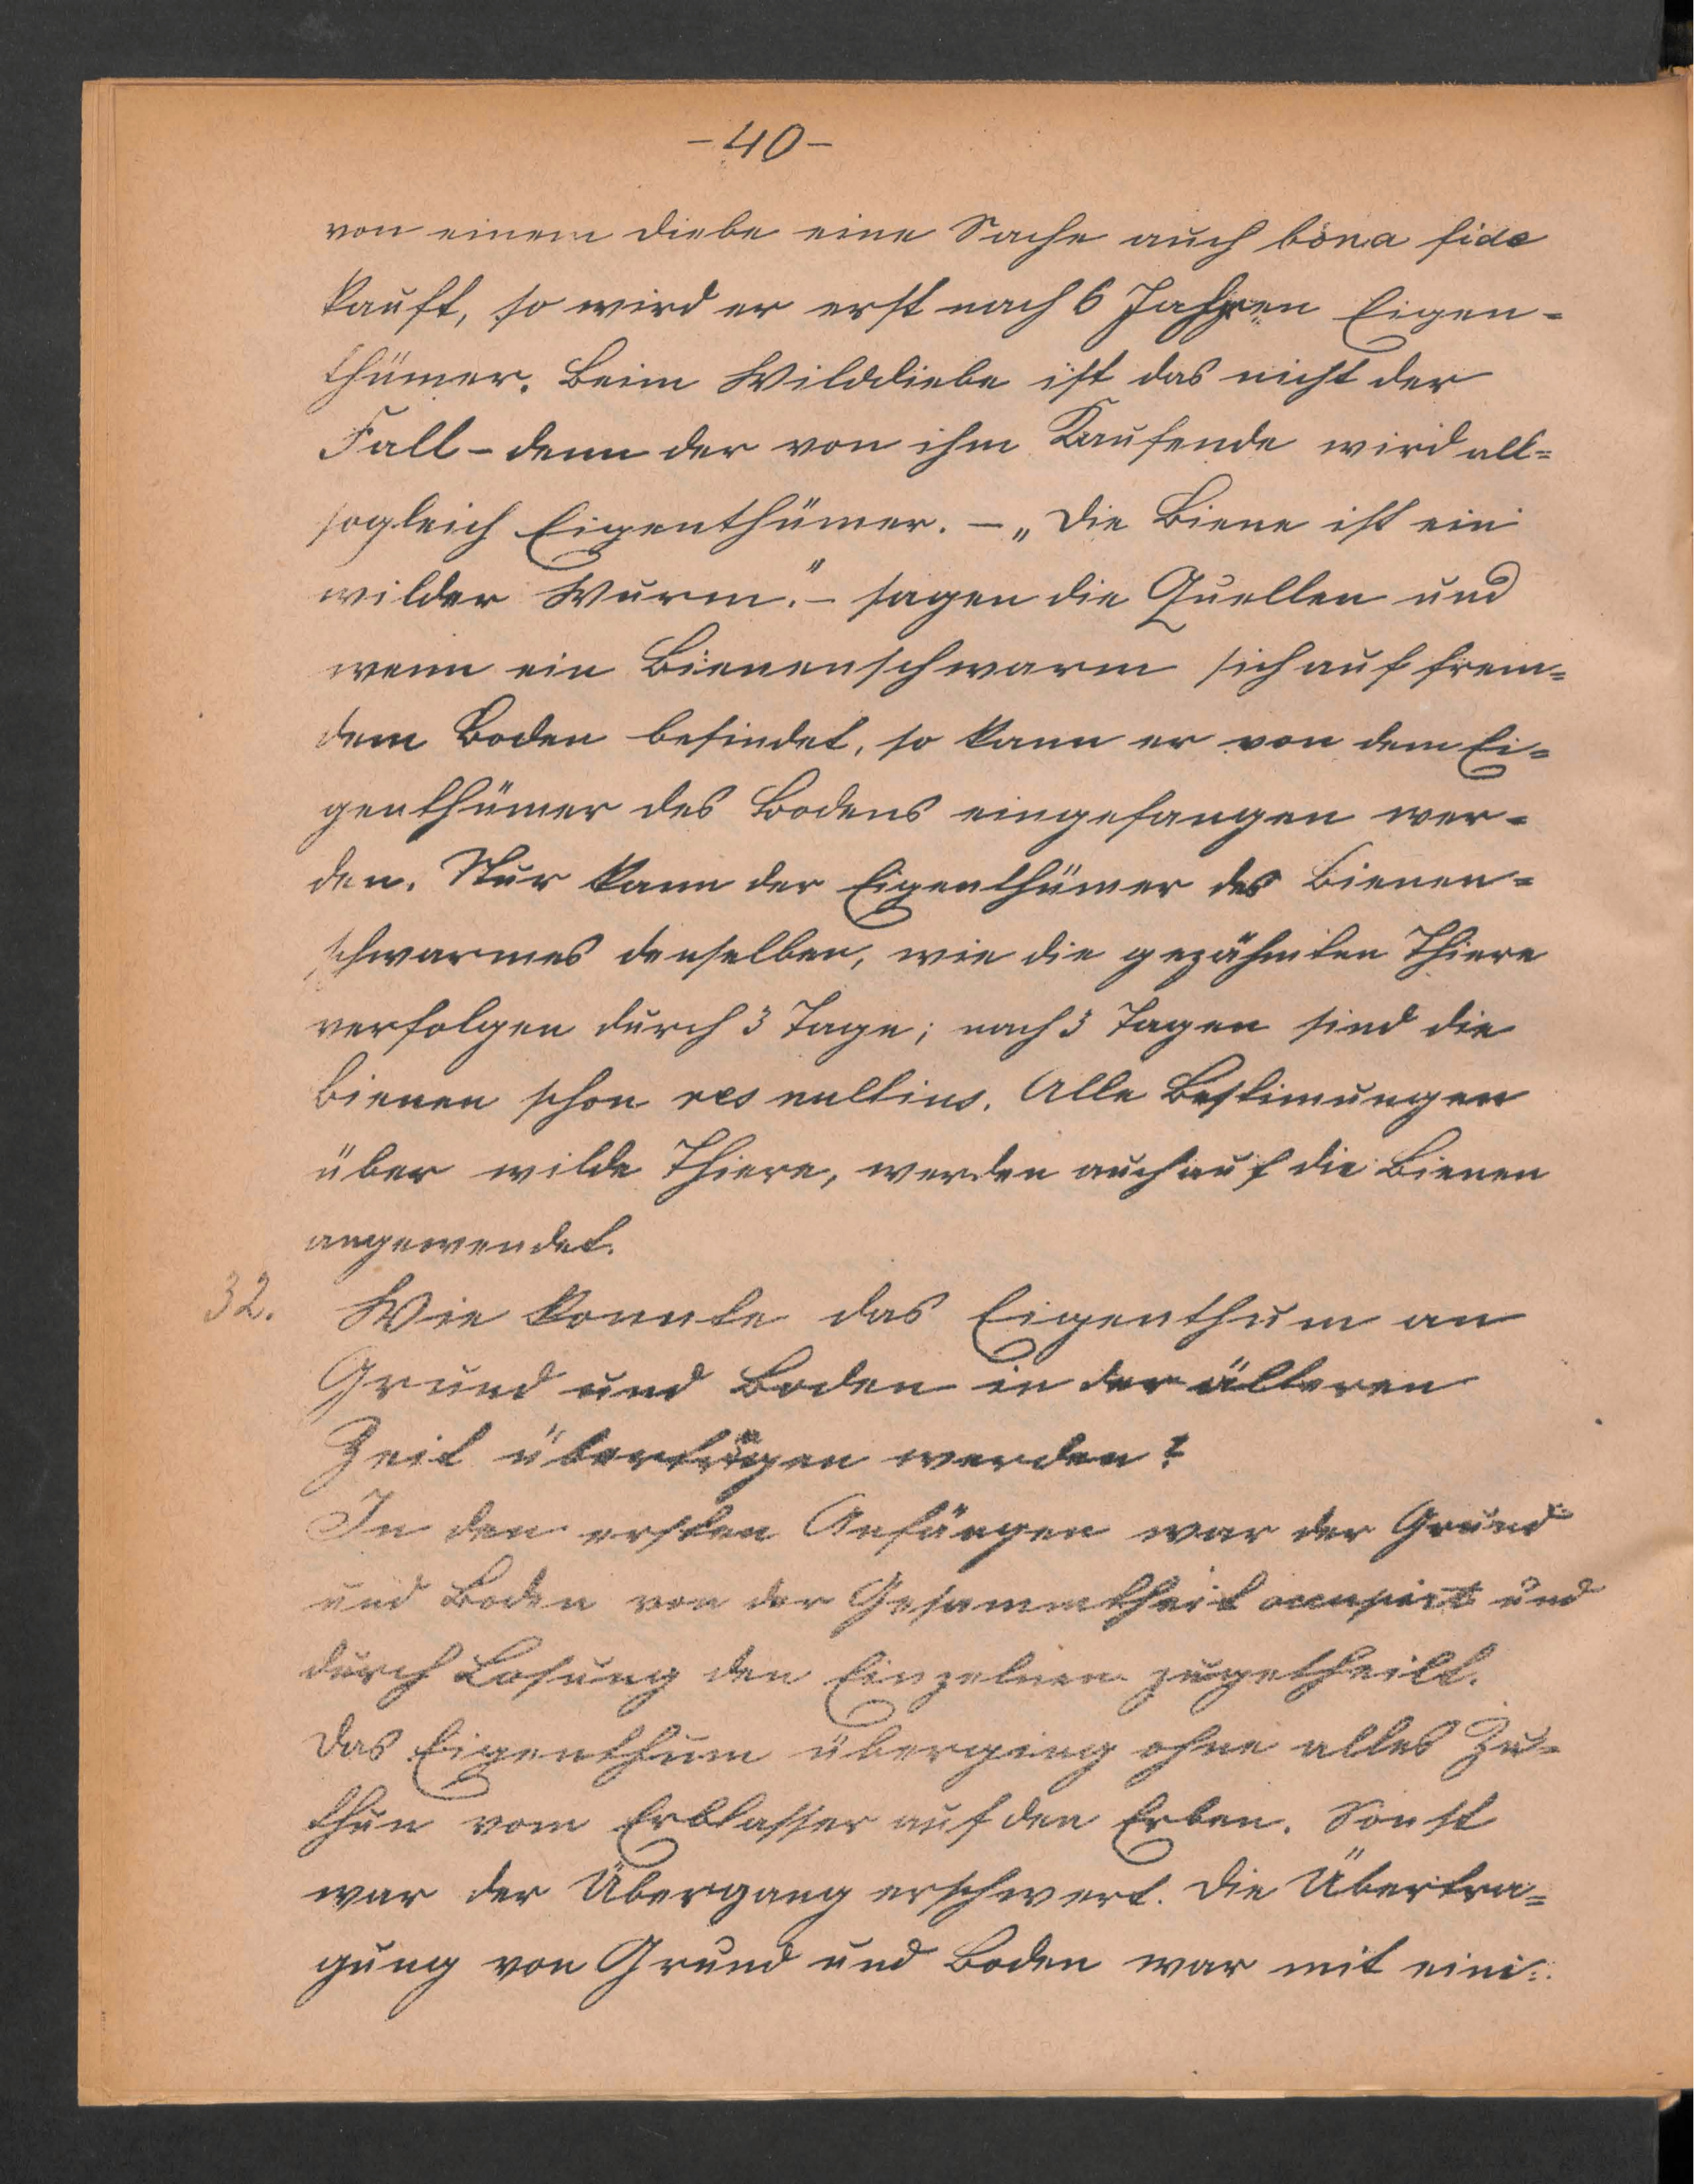 - 40 -
von einem Diebe eine Sache auch bona fide
kauft, so wird er erst nach 6 Jahren Eigen-
thümer. Beim Wilddiebe ist das nicht der
Fall - denn der von ihm Kaufende wird all-
sogleich Eigenthümer. - „Die Biene ist ein
wilder Wurm." - sagen die Quellen und
wenn ein Bienenschwarm sich auf frem-
dem Boden befindet, so kann er von dem Ei-
genthümer des Bodens eingefangen wer-
den. Nur kann der Eigenthümer des Bienen-
schwarmes denselben, wie die gezähmten Thiere
verfolgen durch 3 Tage; nach 3 Tagen sind die
Bienen schon res nullius. Alle Bestimungen
über wilde Thiere, werden auch auf die Bienen
angewendet.
32. Wie konnte das Eigenthum an
Grund und Boden in der älteren
Zeit übertragen werden?
In den ersten Anfängen war der Grund
und Boden von der Gesammtheit occupirt und
durch Losung den Einzelnen zugetheilt.
Das Eigenthum überging ohne alles Zu-
thun vom Erblasser auf den Erben. Sonst
war der Übergang erschwert. Die Übertra-
gung von Grund und Boden war mit eini-